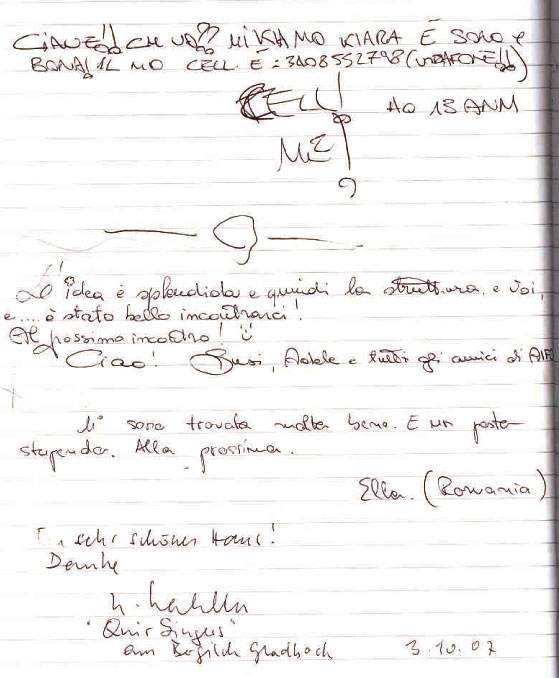 CIAUE!! CM VA?? MI KIAMO KIARA E SONO
BONA! IL MO CELL. È: 3408552798 (VODAFONE!!)
CELL!
HO 13 ANNI
ME
?
L'idea è splendida e quindi la struttura e voi,
e.... è stato bello incontrarci!
Al prossimo incontro!
Ciao! Susi, Adele e tutti gli amici di
Mi sono trovata molto bene. È un posto
stupendo. Alla prossima.
Ella. (Romania)
sehr schönes Haus!
Danke
"Quir Singers"
aus Bergisch Gladbach 3.10.07